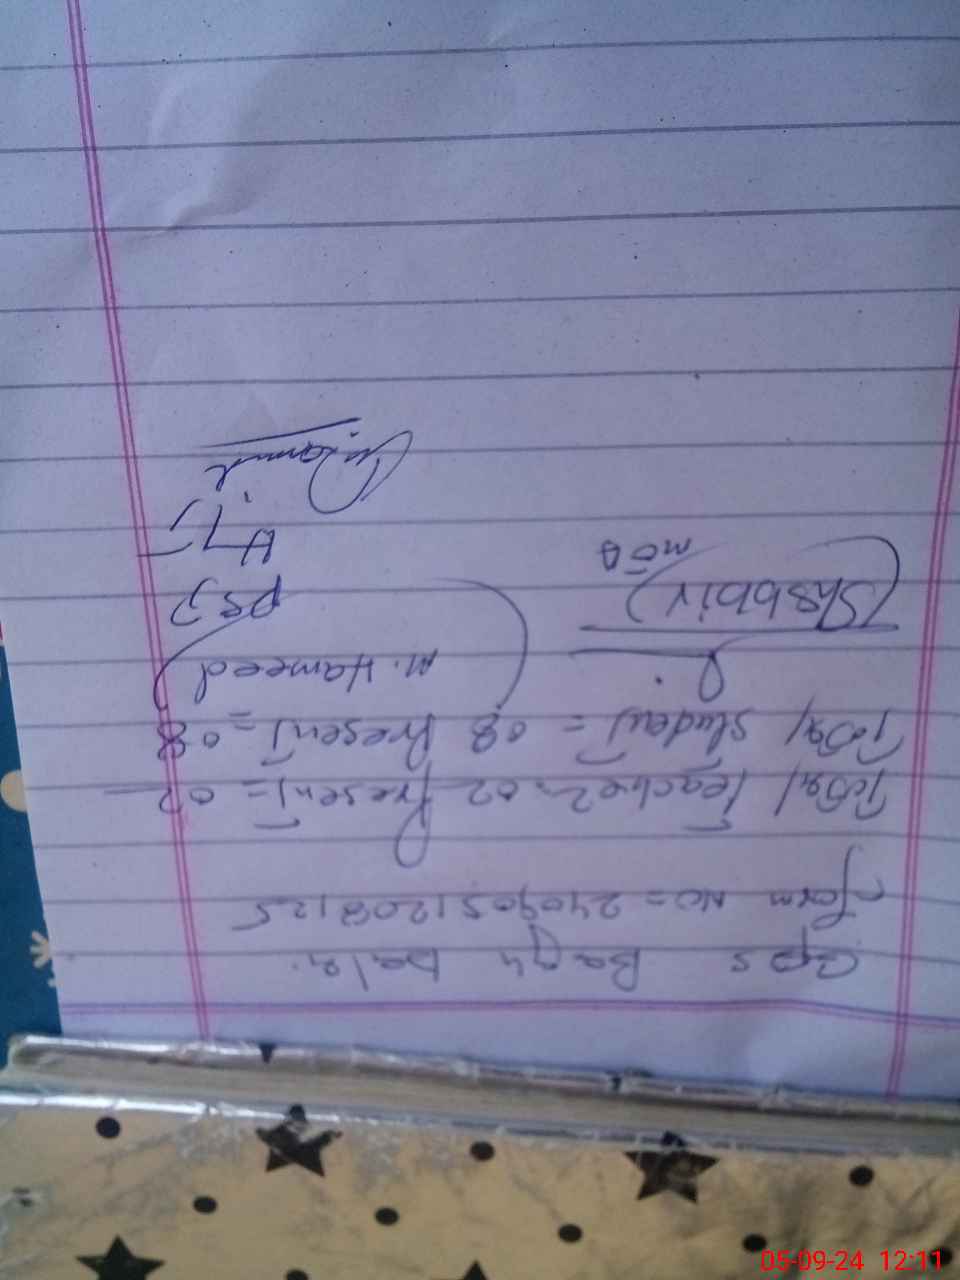 GPS Bagh Bala.
form NO = 2409051208125
Total Teacher = 02 Present = 02
Total student = 08 Present = 08
M. Hameed
(Shabbir)
PST
MEA
H.T
05-09-24 12:11